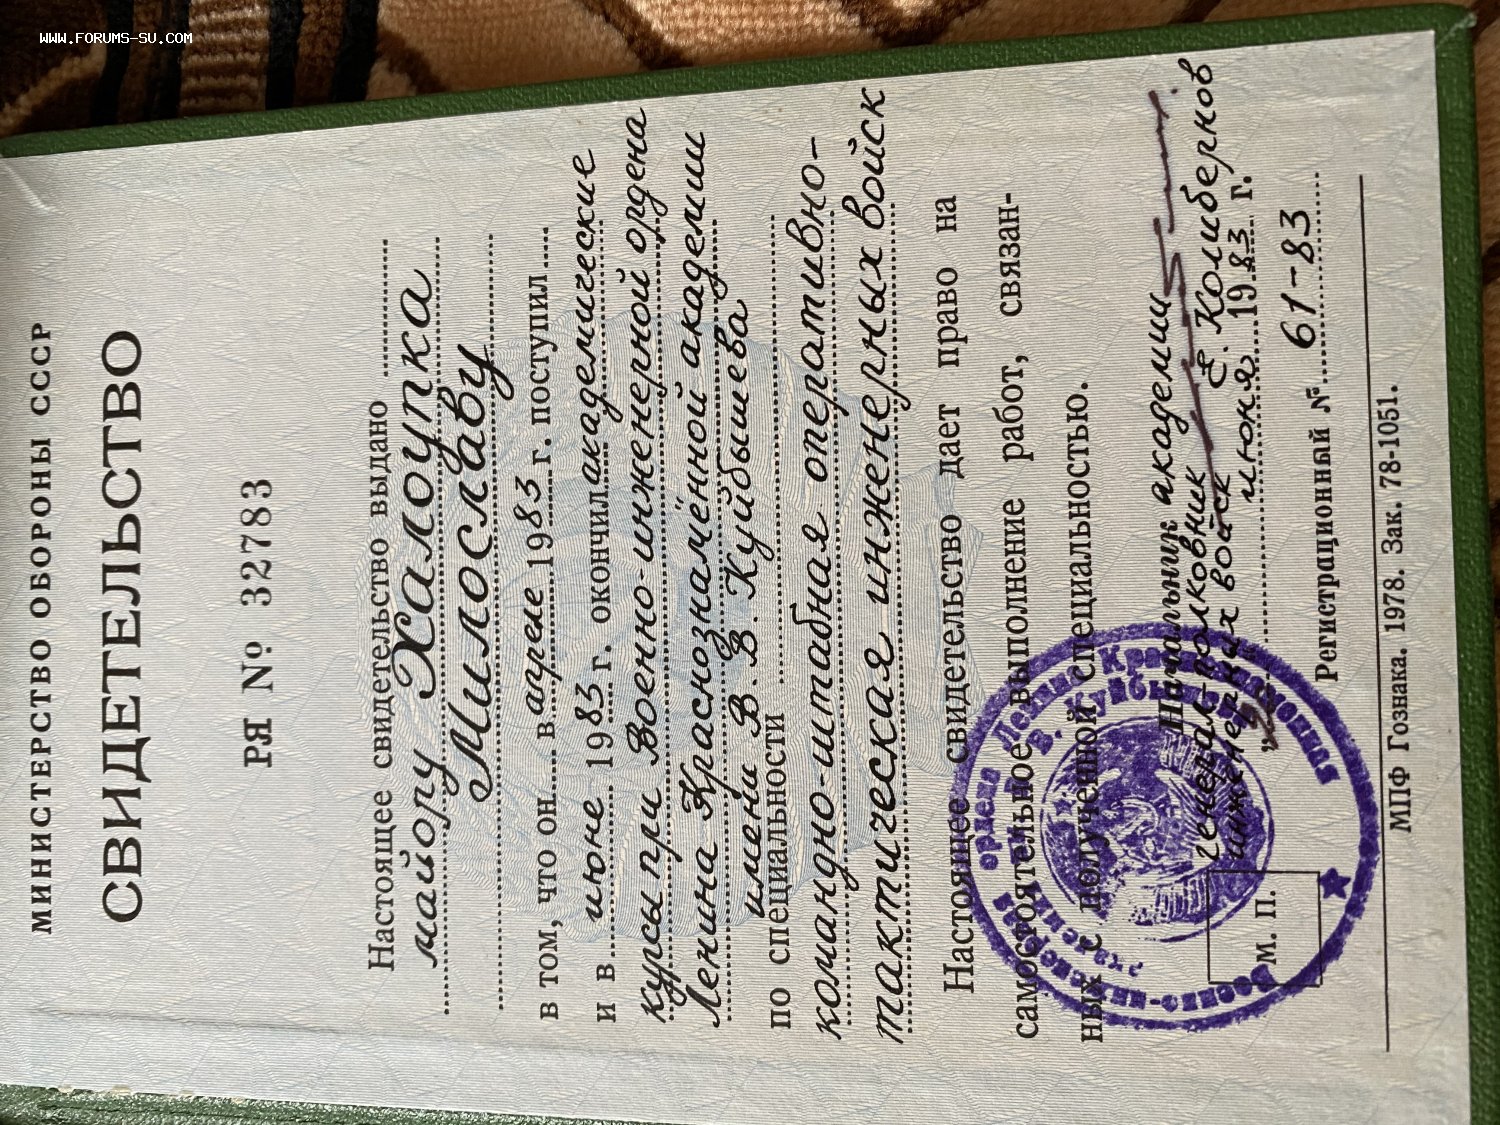 WWW.FORUMS-SU.COM
МИНИСТЕРСТВО ОБОРОНЫ СССР
СВИДЕТЕЛЬСТВО
РЯ № 32783
Настоящее свидетельство выдано
майору Халоупка
Милославу
в том, что он в апреле 1983 г. поступил
и в июне 1983 г. окончил академические
курсы при Военно-инженерной ордена
Ленина Краснознамённой академии
имени В.В. Куйбышева
по специальности
командно-штабная оперативно-
тактическая инженерных войск
Настоящее свидетельство дает право на
самостоятельное выполнение работ, связан-
ных с полученной специальностью.
Начальник академии
генерал-полковник
инженерных войск Е. Колибернов
июня 1983 г.
Регистрационный № 61-83
М. П.
Военно-инженерная ордена Ленина Краснознаменная
академия
МПФ Гознака. 1978. Зак. 78-1051.